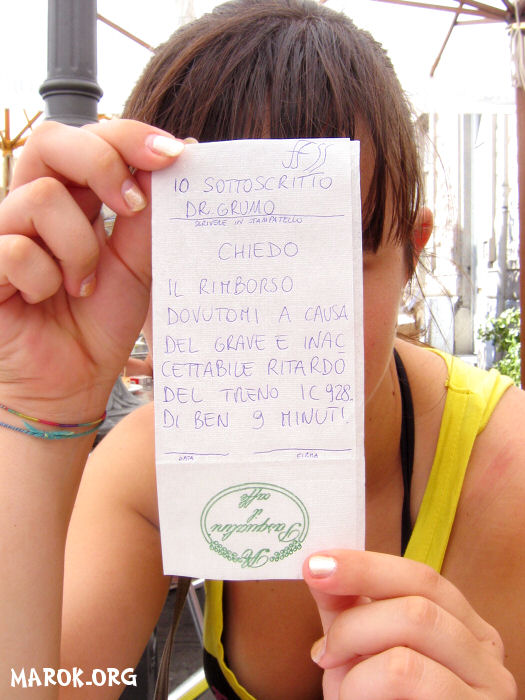 IO SOTTOSCRITTO
DR. GRUMO
SCRIVERE IN STAMPATELLO
CHIEDO
IL RIMBORSO
DOVUTOMI A CAUSA
DEL GRAVE E INAC
CETTABILE RITARDO
DEL TRENO IC 928.
DI BEN 9 MINUTI.
DATA FIRMA
Pasqualini
il
caffè
MAROK.ORG